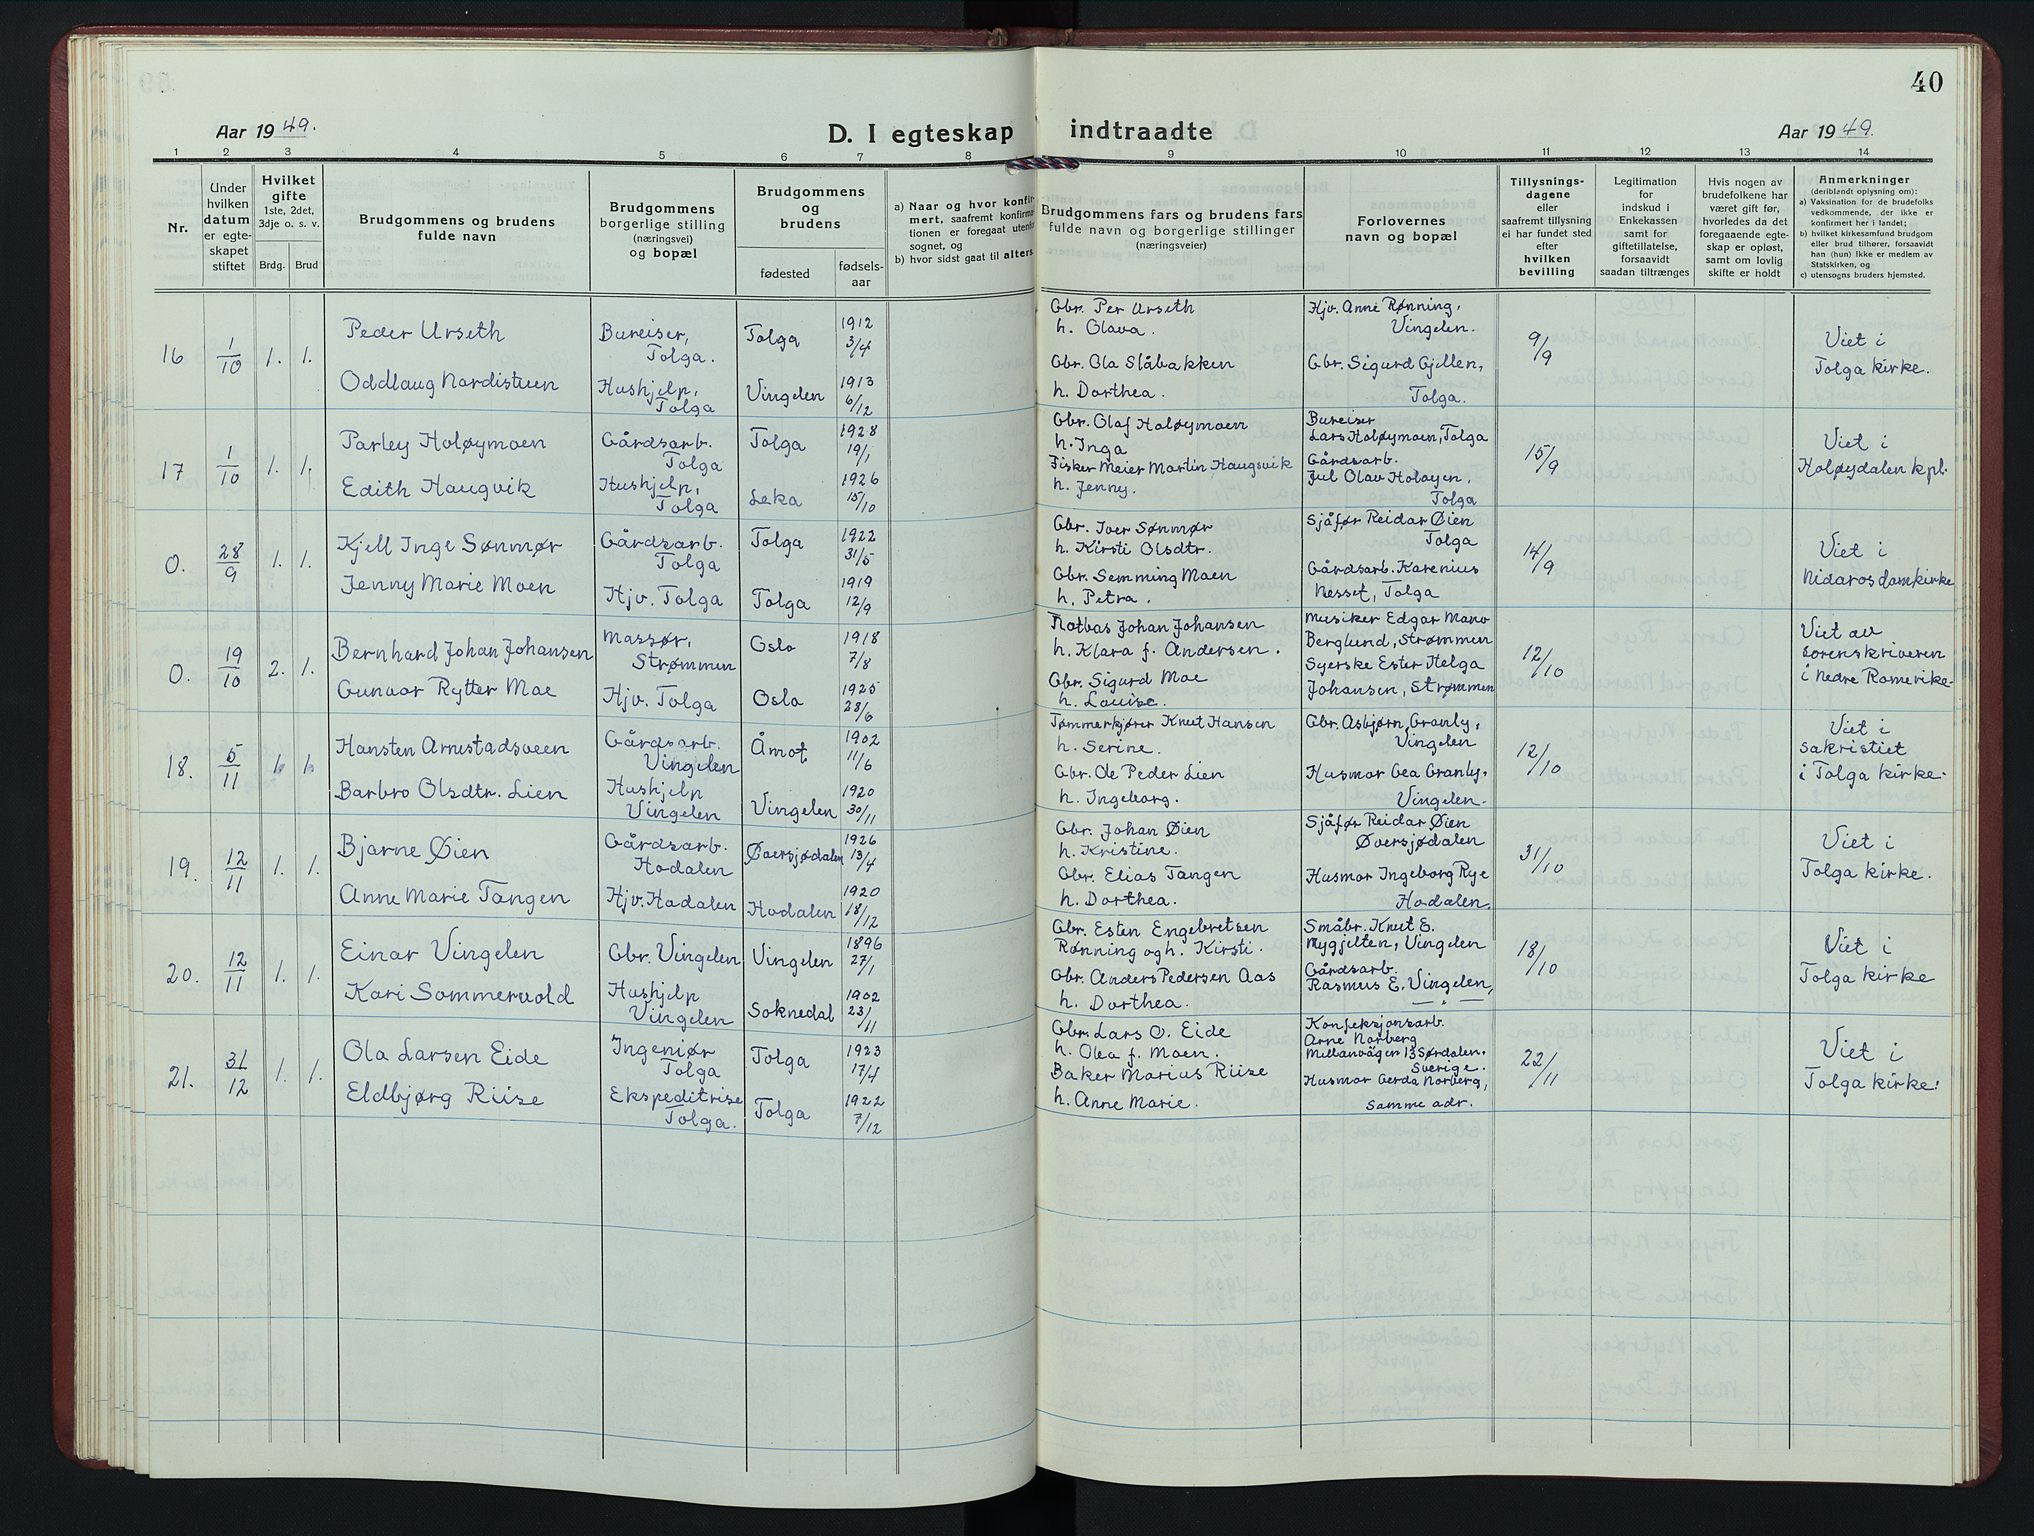 40
Aar 1949.
D. I egteskap indtraadte
Aar 1949.
1 2 3 4 5 6 7 8 9 10 11 12 13 14
Nr.
Under hvilken datum er egteskapet stiftet
Hvilket gifte 1ste, 2det, 3dje o. s. v.
Brdg. Brud
Brudgommens og brudens fulde navn
Brudgommens borgerlige stilling (næringsvei) og bopæl
Brudgommens og brudens
fødested
fødsels-aar
a) Naar og hvor konfirmert, saafremt konfirmationen er foregaat utenfor sognet, og
b) hvor sidst gaat til alters.
Brudgommens fars og brudens fars fulde navn og borgerlige stillinger (næringsveier)
Forlovernes navn og bopæl
Tillysningsdagene eller saafremt tillysning ei har fundet sted efter hvilken bevilling
Legitimation for indskud i Enkekassen samt for giftetillatelse, forsaavidt saadan tiltrænges
Hvis nogen av brudefolkene har været gift før, hvorledes da det foregaaende egteskap er opløst, samt om lovlig skifte er holdt
Anmerkninger
(deriblandt oplysning om):
a) Vaksination for de brudefolks vedkommende, der ikke er konfirmert her i landet;
b) hvilket kirkesamfund brudgom eller brud tilhører, forsaavidt han (hun) ikke er medlem av Statskirken, og
c) utensogns bruders hjemsted.
16 1/10 1. 1.
Peder Urseth
Bureiser, Tolga.
Tolga
1912 3/4
Gbr. Per Urseth
h. Olava.
Hjv. Anne Rønning, Vingelen.
9/9
Viet i Tolga kirke.
Oddlaug Nordistuen
Hushjelp, Tolga
Vingelen
1913 6/12
Gbr. Ola Slåbakken
h. Dorthea.
Gbr. Sigurd Gjellen, Tolga.
17 1/10 1. 1.
Parley Holøymoen
Gårdsarb. Tolga
Tolga
1928 19/1
Gbr. Olaf Holøymoen
h. Inga
Bureiser Lars Holøymoen, Tolga
15/9
Viet i Holøydalen kpl.
Edith Haugvik
Hushjelp, Tolga
Leka
1926 15/10
Fisker Meier Martin Haugsvik
h. Jenny.
Gårdsarb. Jul Olav Holøyen, Tolga
0. 28/9 1. 1.
Kjell Inge Sønmør
Gårdsarb. Tolga
Tolga
1922 31/5
Gbr. Iver Sønmør
h. Kirsti Olsdtr.
Sjåfør Reidar Øien Tolga
14/9
Viet i Nidaros domkirke
Jenny Marie Moen
Hjv. Tolga
Tolga
1919 12/9
Gbr. Semming Moen
h. Petra.
Gårdsarb. Karenius Nesset, Tolga
0. 19/10 2. 1.
Bernhard Johan Johansen
Massør, Strømmen
Oslo
1918 7/8
Johan Johansen
h. Klara f. Andersen.
Musiker Edgar Mano Berglund, Strømmen
12/10
Viet av sorenskriveren i Nedre Romerike.
Gunvor Rytter Moe
Hjv. Tolga
Oslo
1925 28/6
Gbr. Sigurd Moe
h. Louise.
Syerske Ester Helga Johansen, Strømmen
18. 5/11 1. 1.
Hansten Arnestadsveen
Gårdsarb. Vingelen
Åmot
1902 11/6
Tømmerkjører Knut Hansen
h. Serine.
Gbr. Asbjørn Granly, Vingelen
12/10
Viet i sakristiet i Tolga kirke.
Barbro Olsdtr. Lien
Hushjelp Vingelen
Vingelen
1920 30/11
Gbr. Ole Peder Lien
h. Ingeborg.
Husmor Gea Granly, Vingelen.
19. 12/11 1. 1.
Bjarne Øien
Gårdsarb. Hodalen
Øversjødalen
1926 13/4
Gbr. Johan Øien
h. Kristine.
Sjåfør Reidar Øien Øversjødalen
31/10
Viet i Tolga kirke.
Anne Marie Tangen
Hjv. Hodalen
Hodalen
1920 18/12
Gbr. Elias Tangen
h. Dorthea.
Husmor Ingeborg Rye Hodalen.
20. 12/11 1. 1.
Einar Vingelen
Gbr. Vingelen
Vingelen
1896 27/1
Gbr. Esten Engebretsen
Rønning og h. Kirsti.
Småbr. Knut E. Nygjelten, Vingelen
18/10
Viet i Tolga kirke
Kari Sommervold
Hushjelp Vingelen
Soknedal
1902 23/11
Gbr. Anders Pedersen Aas
h. Dorthea.
Gårdsarb. Rasmus E. Vingelen,
21. 31/12 1. 1.
Ola Larsen Eide
Ingeniør Tolga
Tolga
1923 17/4
Gbr. Lars O. Eide
h. Olea f. Moen.
Konfeksjonsarb. Arne Norberg
Mellanvägen 13 Sørdalen. Sverige.
22/11
Viet i Tolga kirke.
Eldbjørg Riise
Ekspeditrise Tolga.
Tolga
1922 7/12
Baker Marius Riise
h. Anne Marie.
Husmor Gerda Norberg, samme adr.